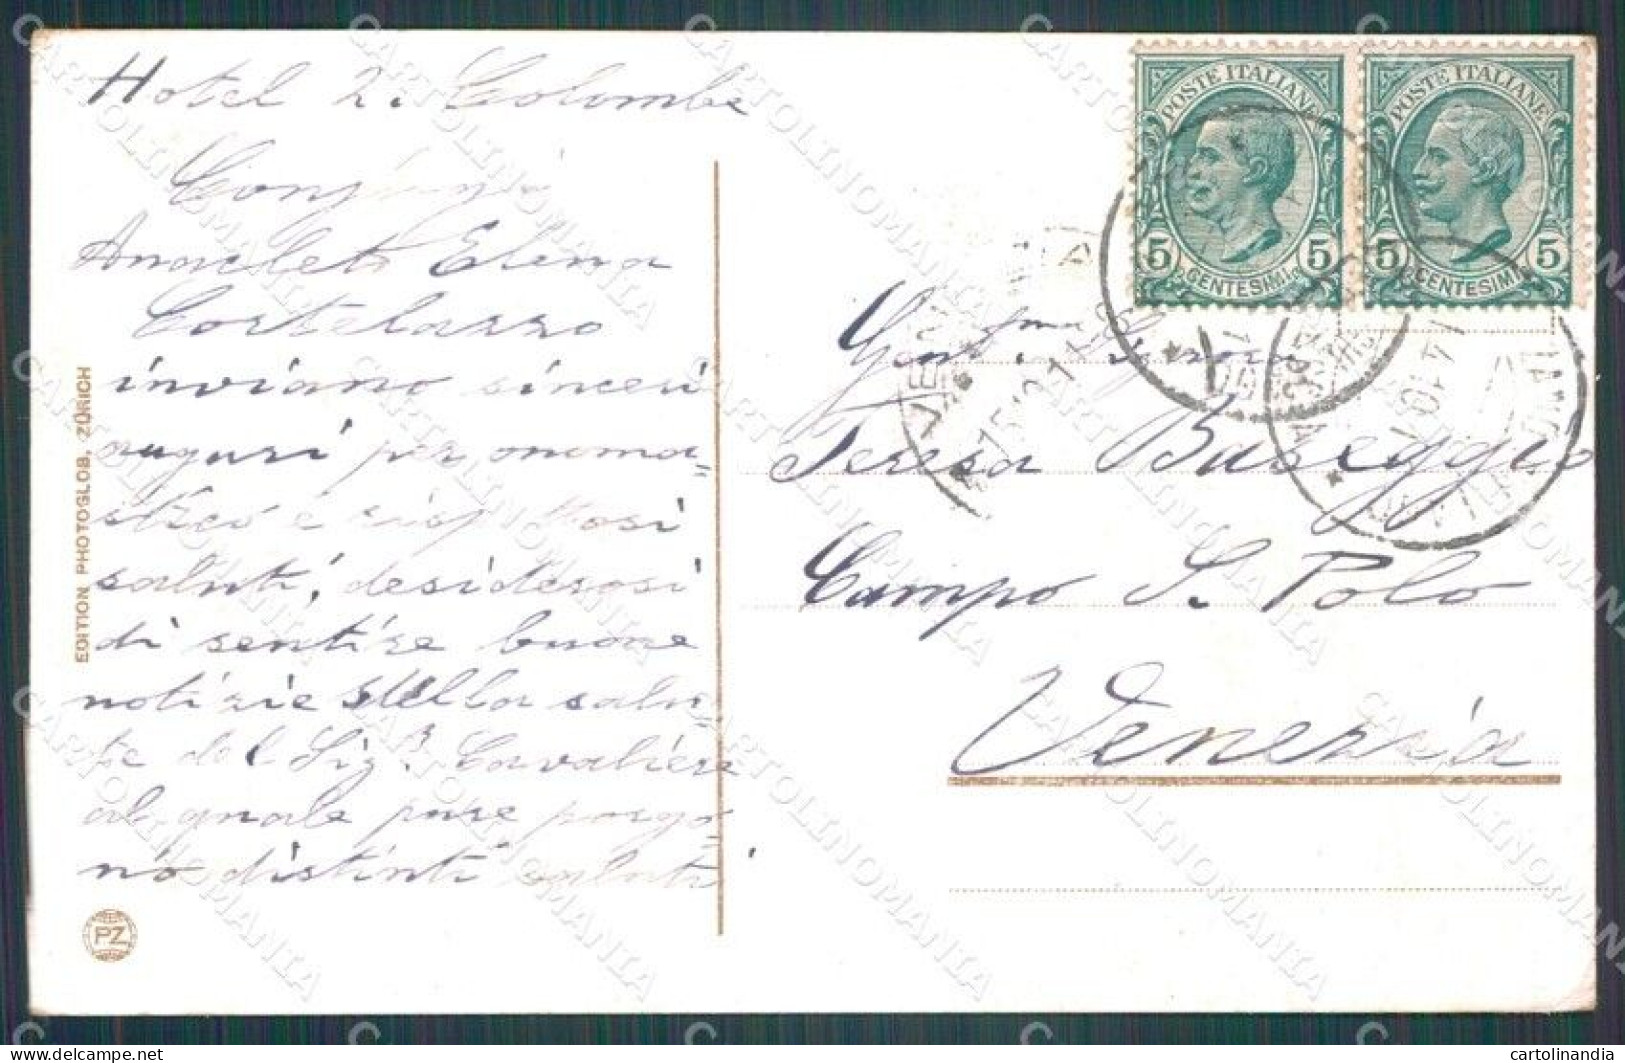 Hotel 2. Colombe
Coniugi
Anacleto Elena
Cortelazzo
inviano sinceri
auguri per onoma=
stico e rispettosi
saluti, desiderosi
di sentire buone
notizie della salu=
te del Sig.r Cavaliere
al quale pure porgo=
no distinti saluti
EDITION PHOTOGLOB, ZÜRICH
PZ
POSTE ITALIANE
5 CENTESIMI 5
POSTE ITALIANE
5 CENTESIMI 5
Gent.ma Signora
Teresa Baseggio
Campo S. Polo
Venezia
CARTOLINOMANIA
cartolinandia